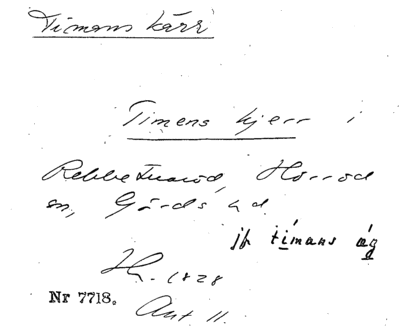 Timans kärr
Timens kjerr i
Rebbetuaröd, Hörröd
sn, Gärds hd.
jfr timans äg
Hr. 1828
Nr 7718.
Akt 11.